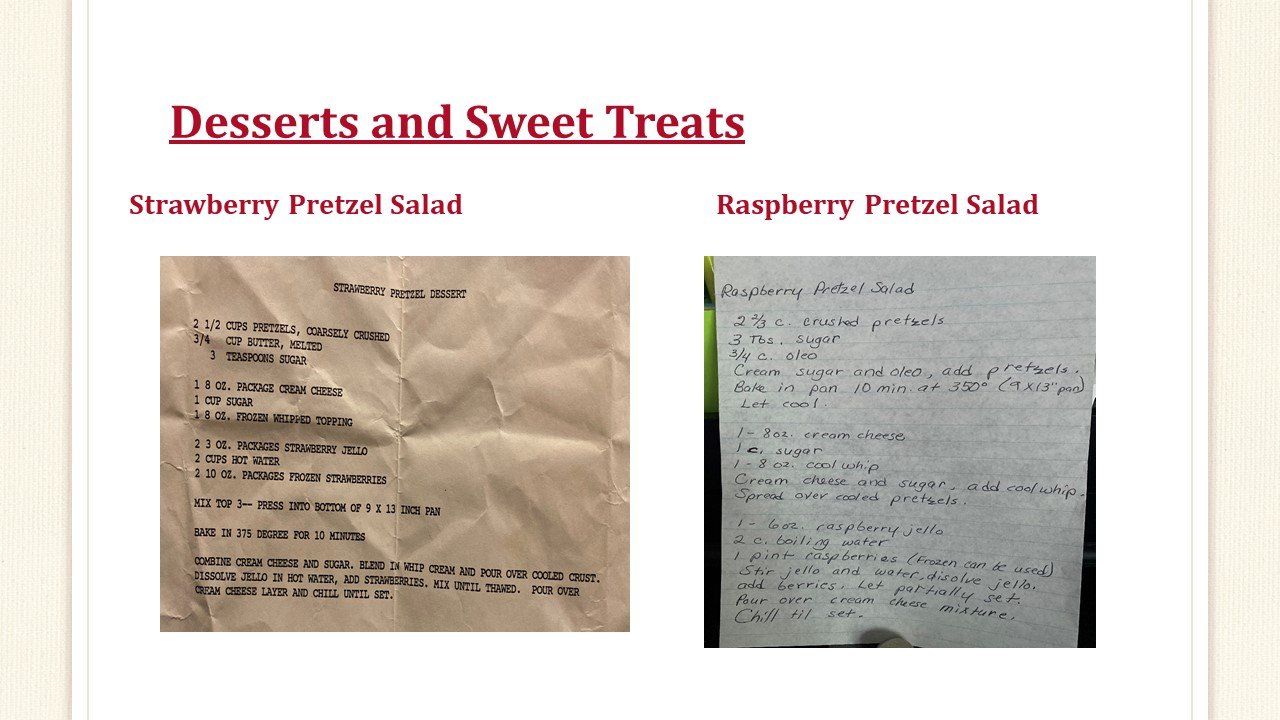 Desserts and Sweet Treats
Strawberry Pretzel Salad
STRAWBERRY PRETZEL DESSERT
2 1/2 CUPS PRETZELS, COARSELY CRUSHED
3/4 CUP BUTTER, MELTED
3 TEASPOONS SUGAR
1 8 OZ. PACKAGE CREAM CHEESE
1 CUP SUGAR
1 8 OZ. FROZEN WHIPPED TOPPING
2 3 OZ. PACKAGES STRAWBERRY JELLO
2 CUPS HOT WATER
2 10 OZ. PACKAGES FROZEN STRAWBERRIES
MIX TOP 3-- PRESS INTO BOTTOM OF 9 X 13 INCH PAN
BAKE IN 375 DEGREE FOR 10 MINUTES
COMBINE CREAM CHEESE AND SUGAR. BLEND IN WHIP CREAM AND POUR OVER COOLED CRUST.
DISSOLVE JELLO IN HOT WATER, ADD STRAWBERRIES. MIX UNTIL THAWED. POUR OVER
CREAM CHEESE LAYER AND CHILL UNTIL SET.
Raspberry Pretzel Salad
Raspberry Pretzel Salad
2 2/3 c. crushed pretzels
3 Tbs. sugar
3/4 c. oleo
Cream sugar and oleo, add pretzels.
Bake in pan 10 min. at 350° (9x13" pan)
Let cool.
1 - 8oz. cream cheese
1 c. sugar
1 - 8 oz. cool whip
Cream cheese and sugar, add cool whip.
Spread over cooled pretzels.
1 - 6oz. raspberry jello
2 c. boiling water
1 pint raspberries (frozen can be used)
Stir jello and water, disolve jello.
add berries. Let partially set.
Pour over cream cheese mixture.
Chill til set.